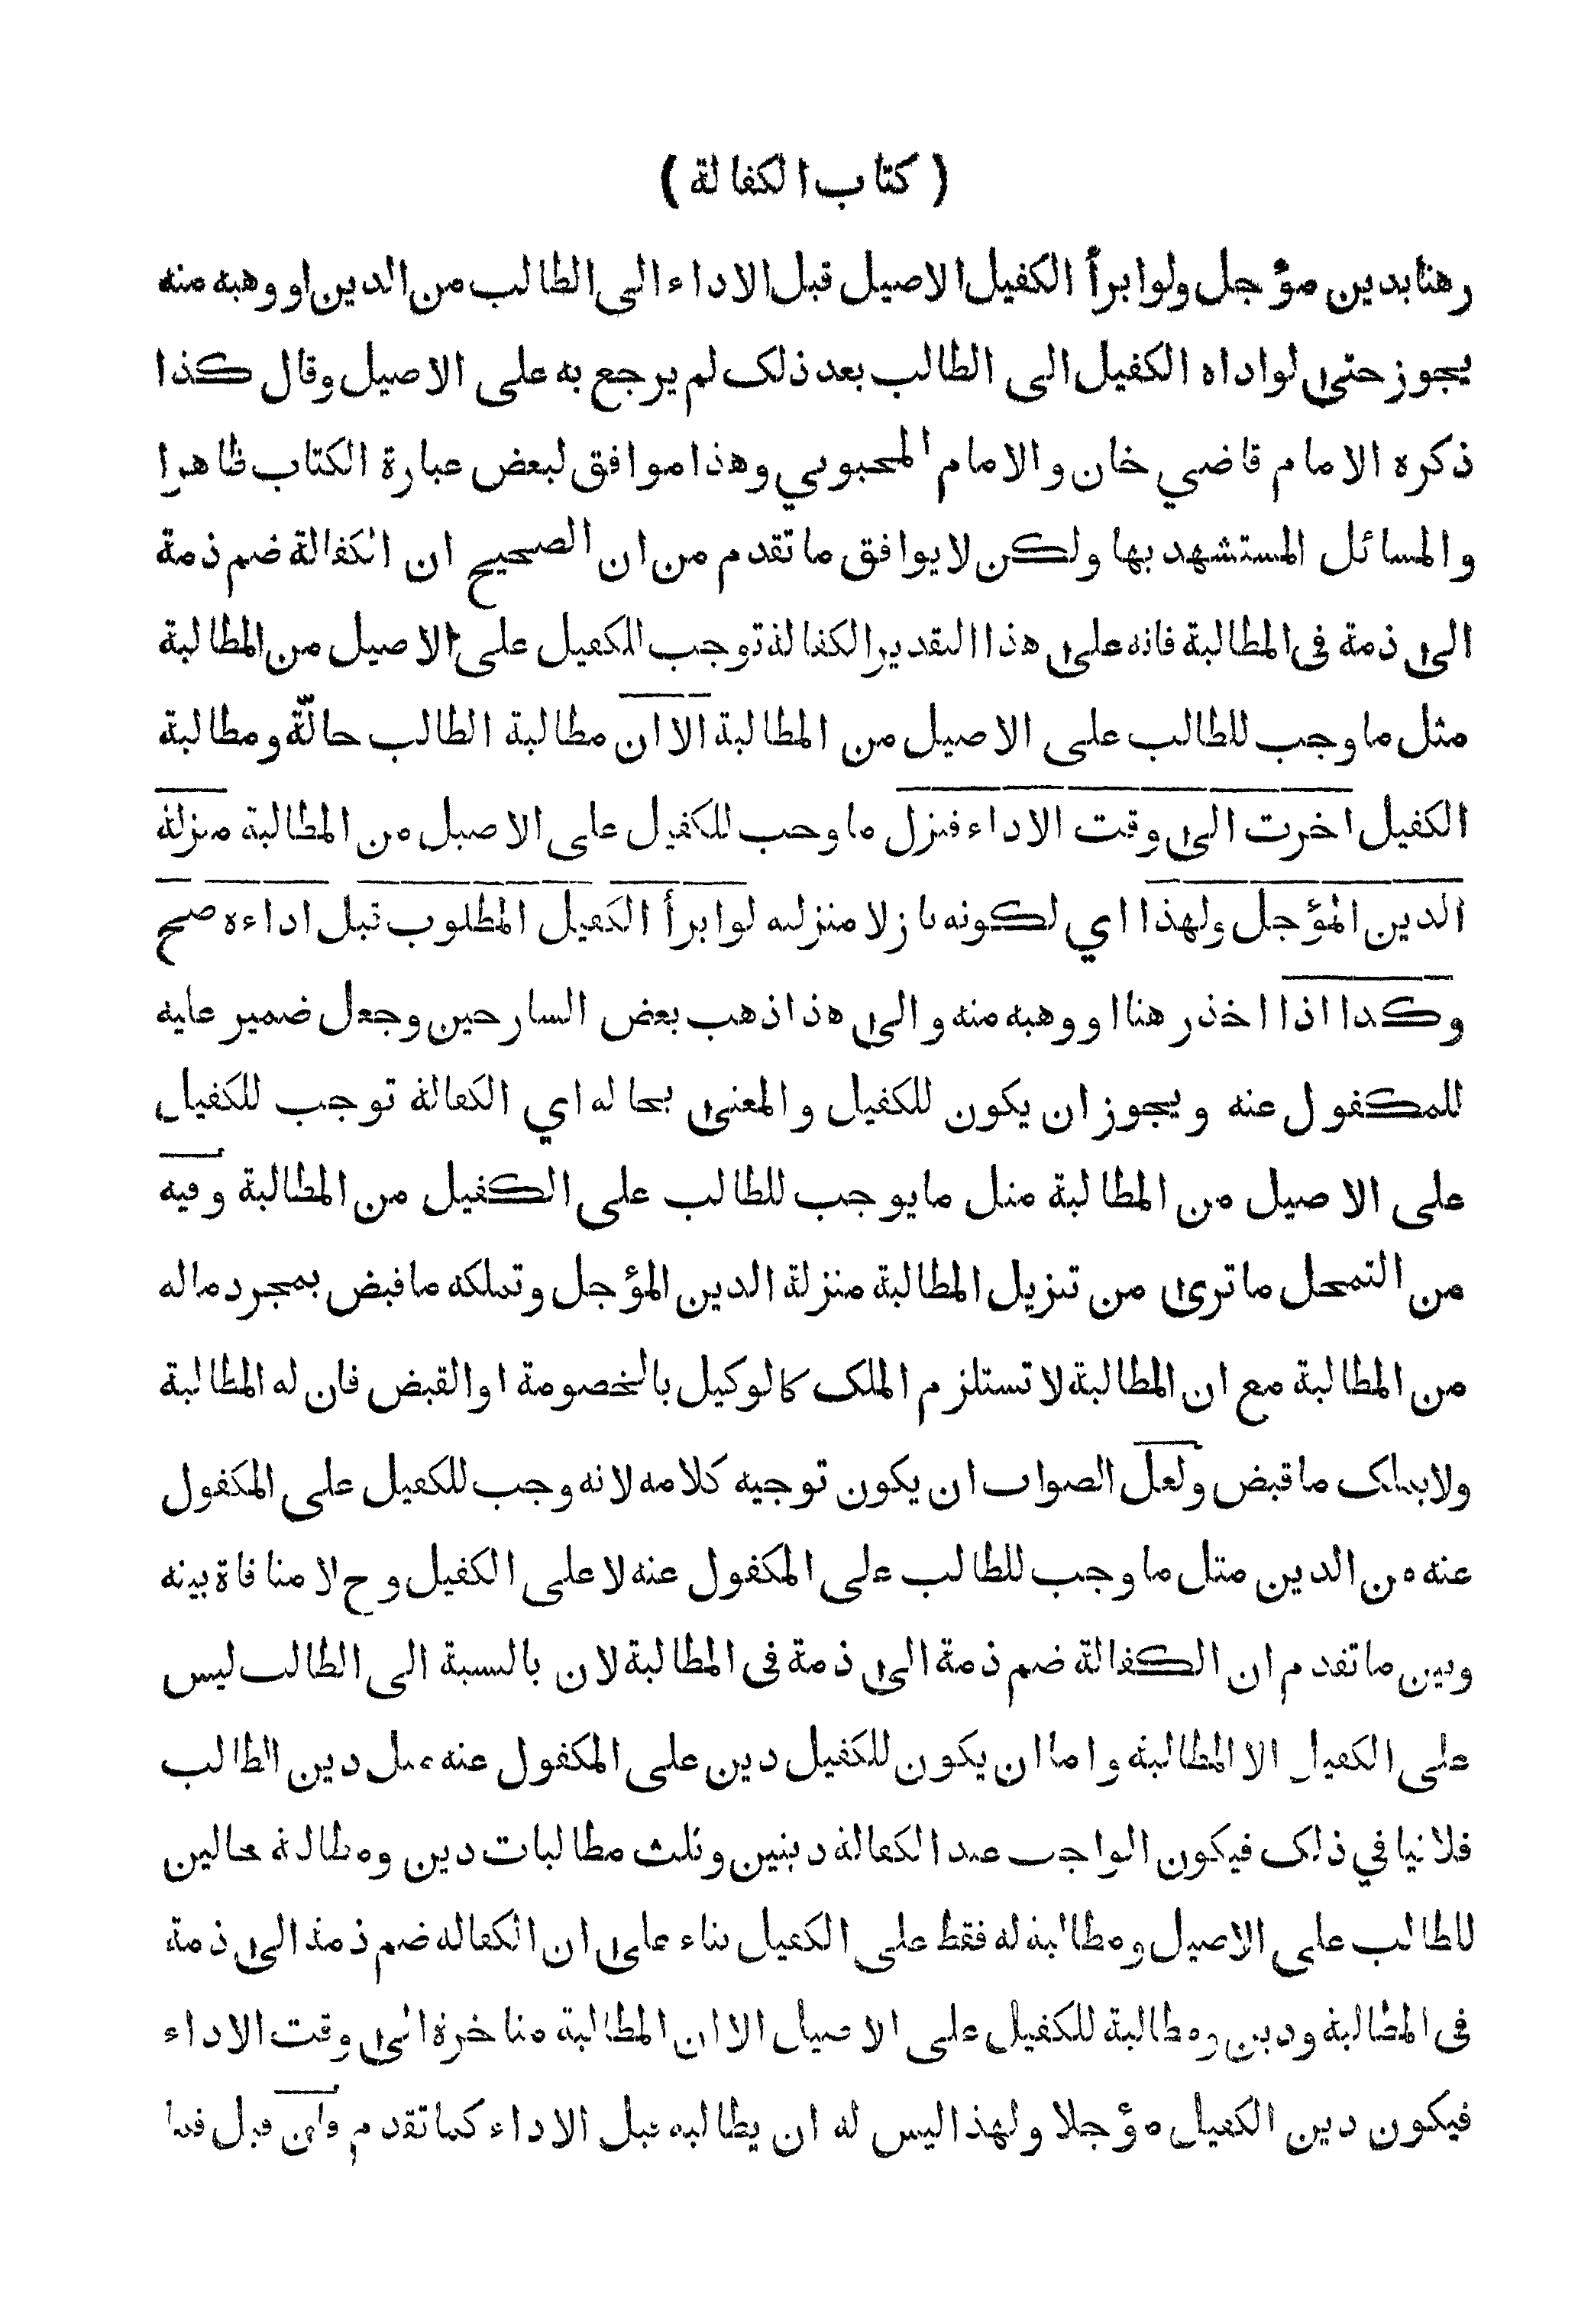 ( كتاب الكفالة )
رهنا بدين مؤجل ولو ابرأ الكفيل الاصيل قبل الاداء الى الطالب من الدين او وهبه منه
يجوز حتى لو اداه الكفيل الى الطالب بعد ذلك لم يرجع به على الاصيل وقال كذا
ذكره الامام قاضي خان والامام المحبوبي وهذا موافق لبعض عبارة الكتاب ظاهرا
والمسائل المستشهد بها ولكن لا يوافق ما تقدم من ان الصحيح ان الكفالة ضم ذمة
الى ذمة فى المطالبة فانه على هذا التقدير الكفالة توجب للكفيل على الاصيل من المطالبة
مثل ما وجب للطالب على الاصيل من المطالبة الا ان مطالبة الطالب حالّة ومطالبة
الكفيل اخرت الى وقت الاداء فنزل ما وجب للكفيل على الاصيل من المطالبة منزلة
الدين المؤجل ولهذا اي لكونه نازلا منزلته لو ابرأ الكفيل المطلوب قبل اداءه صح
وكذا اذا اخذ رهنا او وهبه منه والى هذا ذهب بعض الشارحين وجعل ضمير عليه
للمكفول عنه ويجوز ان يكون للكفيل والمعنى بحاله اي الكفالة توجب للكفيل
على الاصيل من المطالبة مثل ما يوجب للطالب على الكفيل من المطالبة وفيه
من التمحل ما ترى من تنزيل المطالبة منزلة الدين المؤجل وتملكه ما قبض بمجرد ماله
من المطالبة مع ان المطالبة لا تستلزم الملك كالوكيل بالخصومة او القبض فان له المطالبة
ولا يملك ما قبض ولعل الصواب ان يكون توجيه كلامه لانه وجب للكفيل على المكفول
عنه من الدين مثل ما وجب للطالب على المكفول عنه لا على الكفيل وح لا منافاة بينه
وبين ما تقدم ان الكفالة ضم ذمة الى ذمة فى المطالبة لان بالنسبة الى الطالب ليس
على الكفيل الا المطالبة واما ان يكون للكفيل دين على المكفول عنه مثل دين الطالب
فلا ينافي ذلك فيكون الواجب عند الكفالة دينين وثلث مطالبات دين ومطالبة حالين
للطالب على الاصيل ومطالبة له فقط على الكفيل بناء على ان الكفالة ضم ذمة الى ذمة
فى المطالبة ودين ومطالبة للكفيل على الاصيل الا ان المطالبة متاخرة الى وقت الاداء
فيكون دين الكفيل مؤجلا ولهذا ليس له ان يطالبه قبل الاداء كما تقدم فان قيل فما